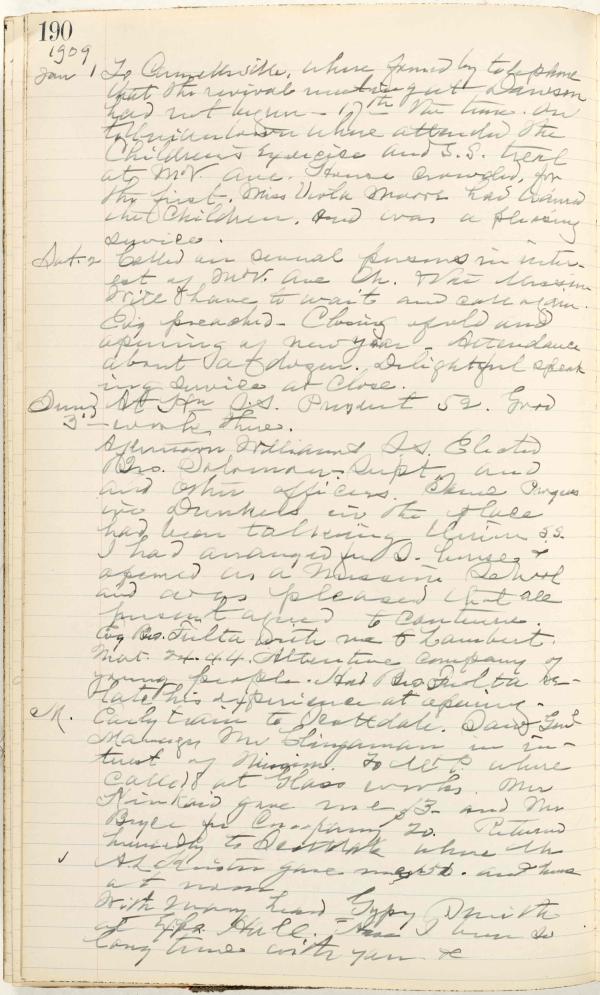 190
1909
Jan 1 To Connellsville, where formed by telephone
that the revival meeting at Dawson
had not begun - 17th the time. on
to Uniontown where attended the
Children's Exercise and S.S. treat
at McV. Ave. House crowded, for
the first. Miss Viola Moore had trained
the Children. And was a pleasing
service.
Sat. 2 Called on several persons in inter-
est of McV. Ave Ch. & the Mission
Will have to wait and call again.
Evg preached - Closing of old and
opening of new year - Attendance
about a dozen. Delightful speak
ing service at close.
Sund At S.S. Present 52. Good
3 - work there.
Afternoon Williams S.S. Elected
Bro. Solomon - Supt. and
and other officers. Some Progres
ive Dunkers in the place
had been talking Union S.S.
I had arranged for S. house &
opened as a Mission School
and was pleased that all
present agreed to continue.
Evg Bro. Fulta with me to Lambert.
Mat. 24.44. Attentive company of
young people. Had Bro Fulta re-
late his experience at opening.
M. Early train to Scottdale. Saw Genl
Manager Mr Slingaman in in-
terest of Mission. To Mt P. where
Called at Glass works. Mr
Kinkaid gave me $3 - and Mr
Bryce for Company 20. Returned
hurriedly to Scottdale where Mr
gave me and home
at noon
With many heard Gypsy Smith
at Hall. "Have I been so
long time with you &